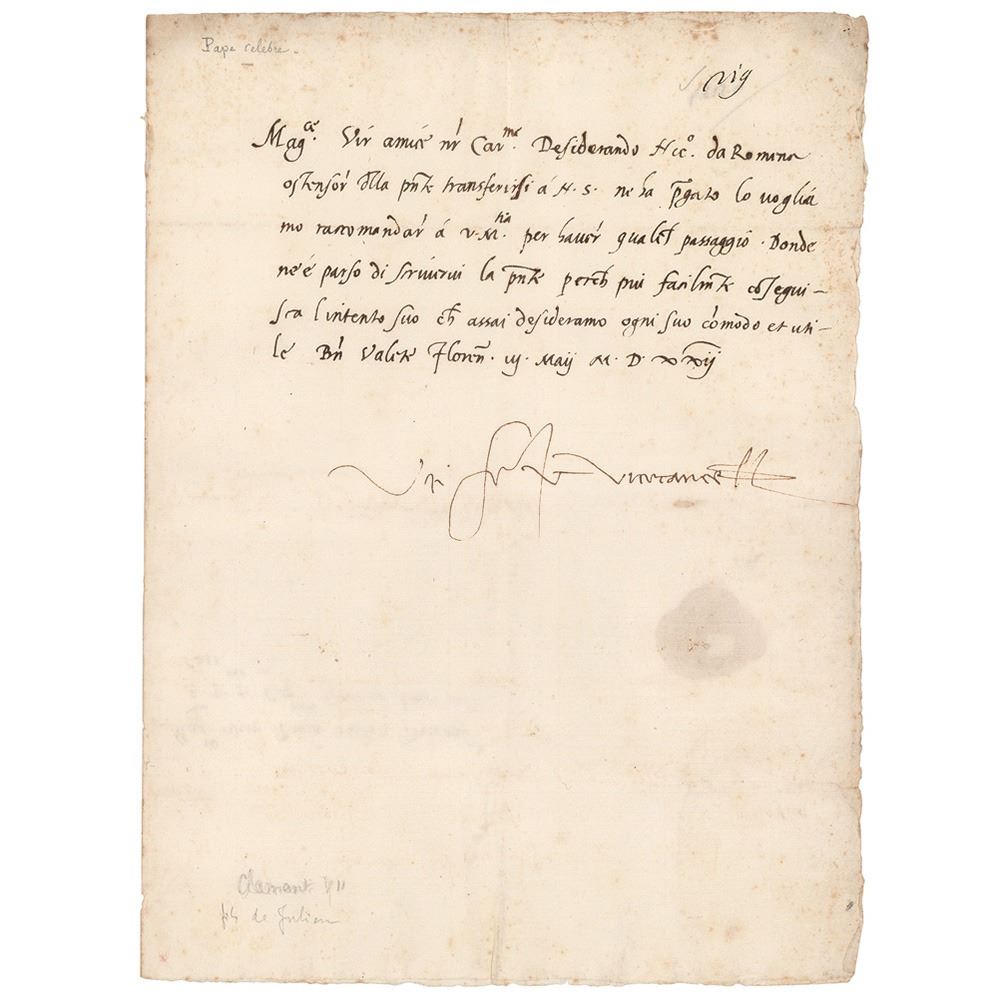 Pape celèbre.
Mag.ce Vir amice nr Car.me Desiderando Nic.o da Romena
ostensor dlla pnte transferirsi á N. S. ne ha pgato lo voglia
mo raccomandar á v. M.tia per haver qualch passaggio. Donde
ne é parso di scrivervi la pnte perch piu facilmte consegui-
sca l'intento suo ch assai desideramo ogni suo cómodo et uti-
le Bn Valete Floren. iij. Maij M. D. xxij
Vr Vicecancell
Clement VII
fils de Julien